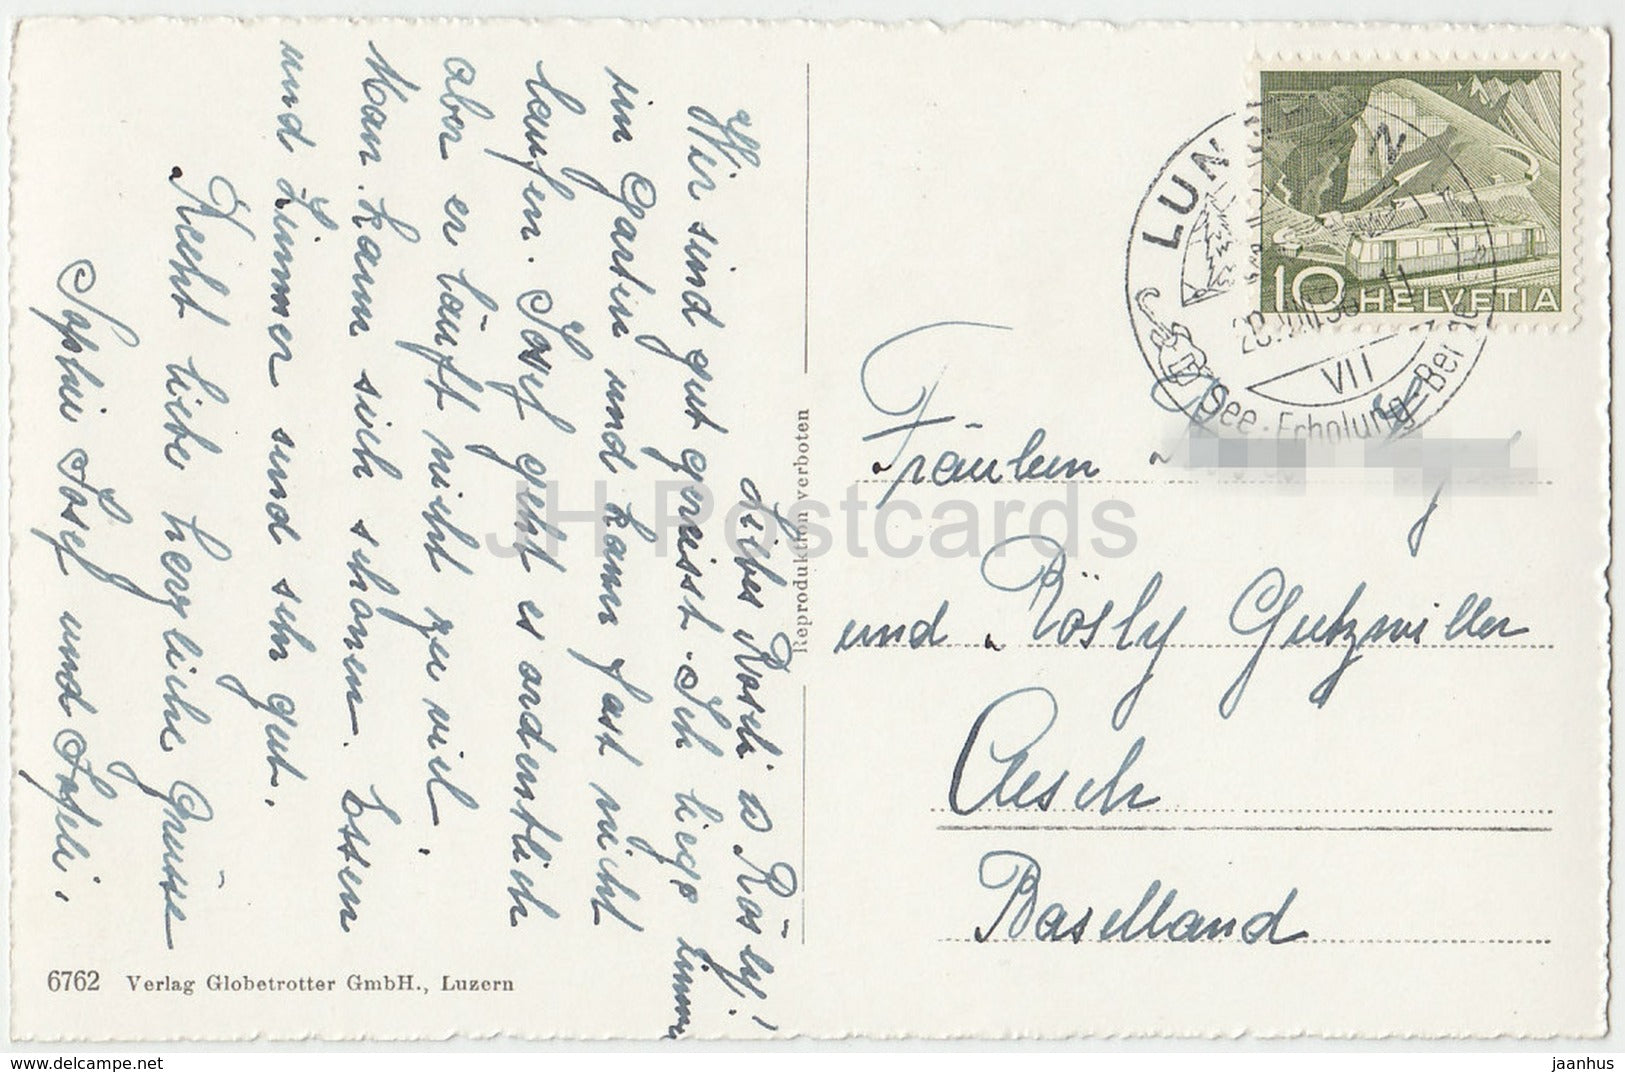 Liebes Rösli u Rösly!
Wir sind gut gereisst. Ich liege immer
im Garten und kann fast nicht
laufen. Josef geht es ordentlich
aber er läuft nicht zu viel.
Man kann sich schonen. Essen
und Zimmer sind sehr gut.
Recht liebe herzliche Grüsse
Sophie Josef und Sofeli.
6762 Verlag Globetrotter GmbH., Luzern
Reproduktion verboten
10 HELVETIA
LUN
VII
See-Erholung-Berge
Fräulein
und Rösly Gutzwiller
Aesch
Baselland
JH Postcards
www.delcampe.net
jaanhus